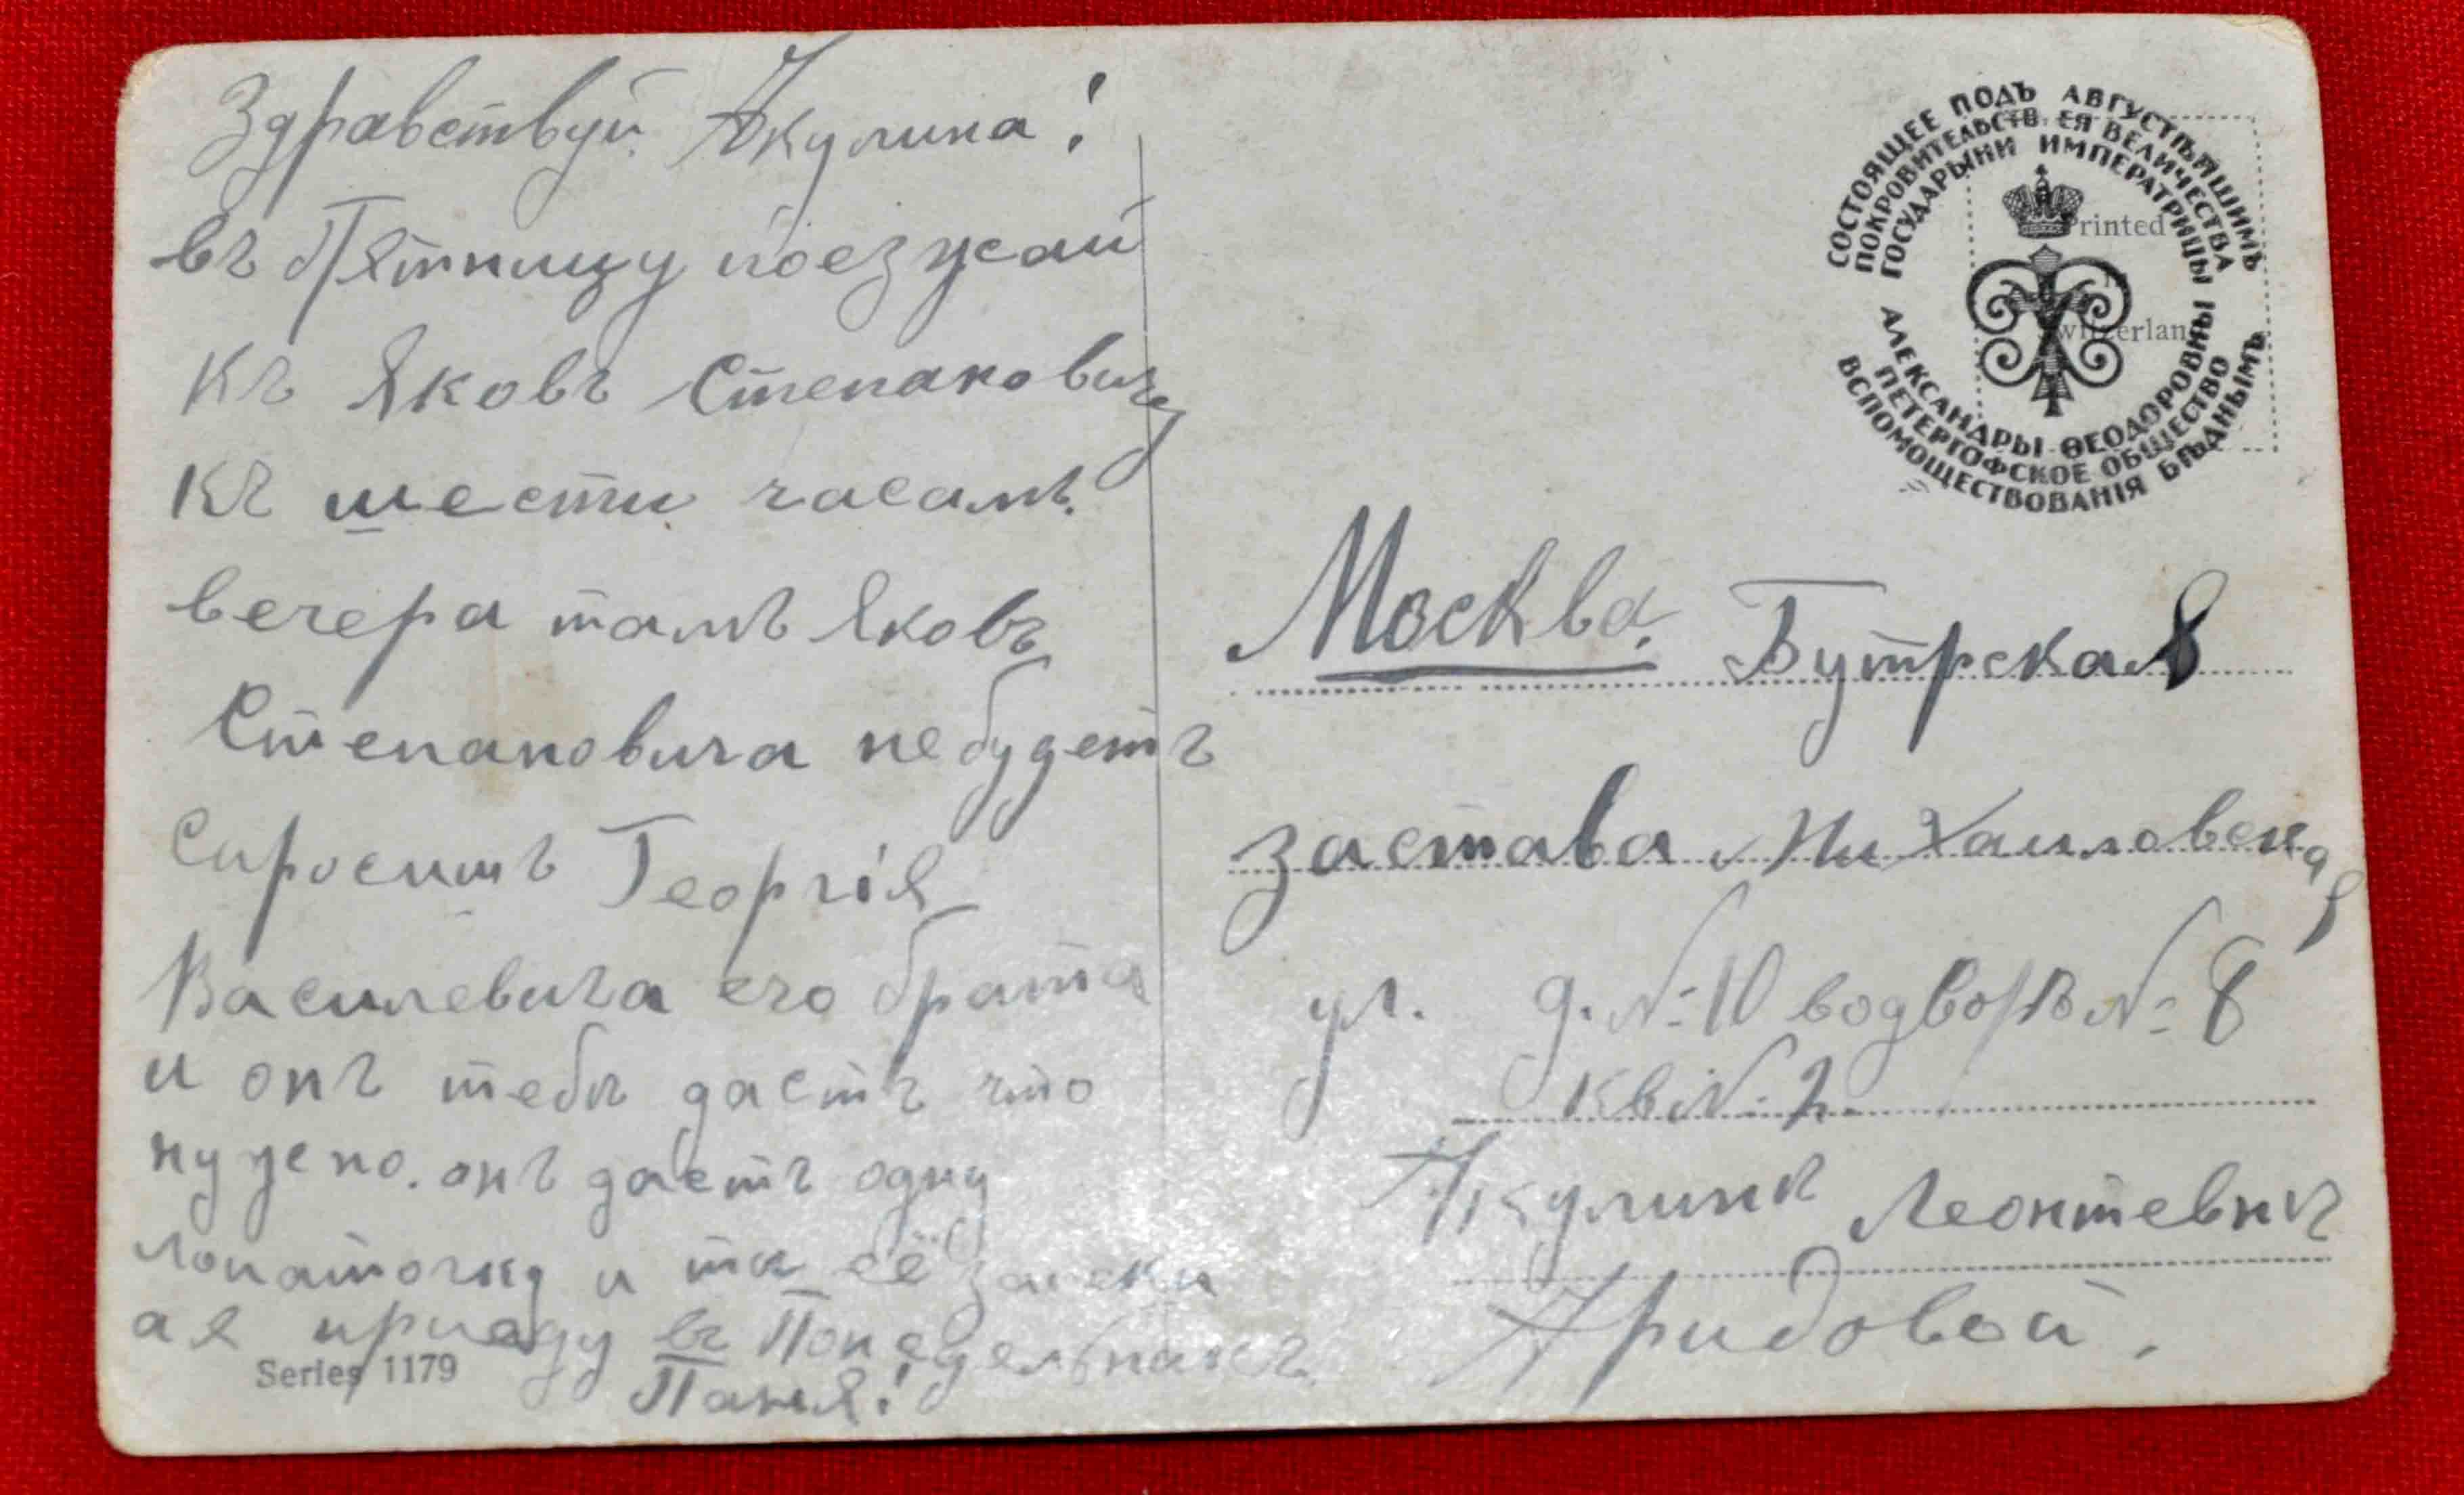 Здравствуй Акулина!
въ Пятницу поезжай
Къ Яковъ Степановичу
Къ шести часамъ.
вечера тамъ Яковъ
Степановича небудетъ
Спроситъ Георгія
Василевича его брата
и онъ тебѣ дастъ что
нужно. онъ дастъ одну
лопаточку и ты её
ая приеду въ Понедельникъ
Паня!
Series 1179
СОСТОЯЩЕЕ ПОДЪ АВГУСТѢЙШИМЪ
ПОКРОВИТЕЛЬСТВ. ЕЯ ВЕЛИЧЕСТВА
ГОСУДАРЫНИ ИМПЕРАТРИЦЫ
АЛЕКСАНДРЫ ѲЕОДОРОВНЫ
ПЕТЕРГОФСКОЕ ОБЩЕСТВО
ВСПОМОЩЕСТВОВАНІЯ БѢДНЫМЪ
Printed
in
Switzerland
Москва. Бутрская
застава Михаиловская
ул. д. №10 водворѣ № 8
кв № 2.
Акулинѣ Леонтевнѣ
Аридовой.